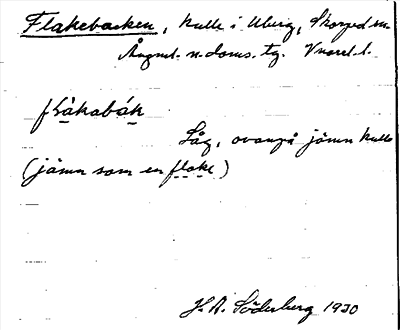 Flakebacken, kulle i Uberg, Skorped sn.
Ångml. n. doms. tg. V norrl. l.
flákabák
Låg, ovanpå jämn kulle
(jämn som en flake)
H. A. Söderberg 1930